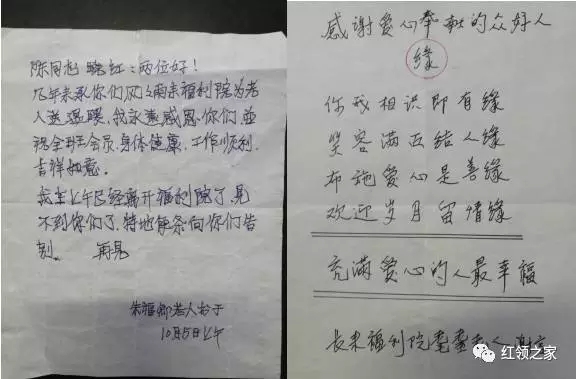 陈同志 晓红:两位好!
几年来承你们风雨来福利院为老
人送温暖,我永生感恩你们,並
祝全班会员,身体健康,工作顺利,
吉祥如意。
我在上午已经离开福利院了,见
不到你们了,特地便条向你们告
别。 再见
朱福卿老人於于
10月5日上午
感谢爱心奉献的众好人
缘
你我相识即有缘
笑容满面结人缘
布施爱心是善缘
欢迎岁月留情缘
充满爱心的人最幸福
长来福利院 老人
红领之家